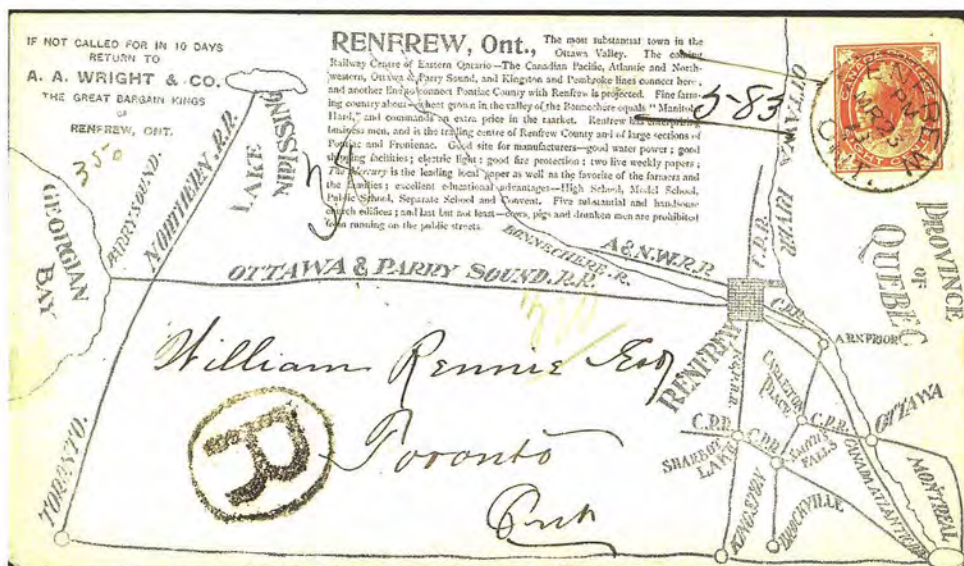 IF NOT CALLED FOR IN 10 DAYS
RETURN TO
A. A. WRIGHT & CO.
THE GREAT BARGAIN KINGS
OF
RENFREW, ONT.
350
RENFREW, Ont., The most substantial town in the
Ottawa Valley. The coming
Railway Centre of Eastern Ontario—The Canadian Pacific, Atlantic and North-
western, Ottawa & Parry Sound, and Kingston and Pembroke lines connect here,
and another line to connect Pontiac County with Renfrew is projected. Fine farm-
ing country about—wheat grown in the valley of the Bonnechere equals "Manitoba
Hard," and commands an extra price in the market. Renfrew has enterprising
business men, and is the trading centre of Renfrew County and of large sections of
Pontiac and Frontenac. Good site for manufacturers—good water power; good
shipping facilities; electric light; good fire protection; two live weekly papers;
The Mercury is the leading local paper as well as the favorite of the farmers and
the families; excellent educational advantages—High School, Model School,
Public School, Separate School and Convent. Five substantial and handsome
church edifices; and last but not least—cows, pigs and drunken men are prohibited
from running on the public streets.
5-83
CANADA POSTAGE
EIGHT CENTS
RENFREW
PM
MR 2
ONT.
OTTAWA RIVER
PROVINCE
OF
QUEBEC
LAKE
NIPISSING
NORTHERN R.R.
PARRY SOUND.
GEORGIAN
BAY
OTTAWA & PARRY SOUND. R.R.
BONNECHERE. R.
A & N.W.R.R.
C.P.R.
RENFREW
K & P.R.R.
C.P.R.
ARNPRIOR
CARLETON
PLACE
C.P.R.
OTTAWA
C.P.R.
SHARBOT
LAKE
C.P.R.
SMITHS
FALLS
CANADA ATLANTIC
MONTREAL
KINGSTON
BROCKVILLE
TORONTO.
William Rennie Esq
Toronto
Ont
R